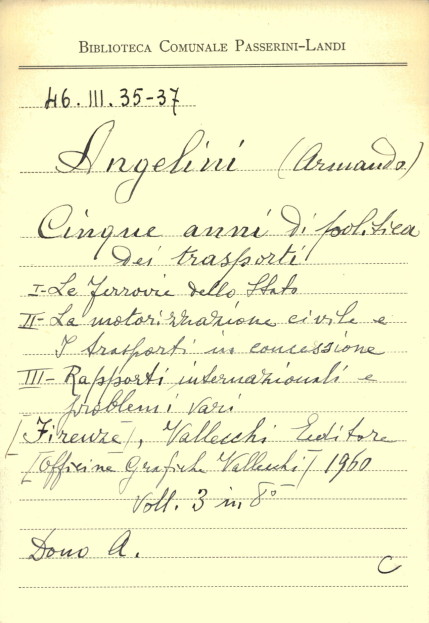 BIBLIOTECA COMUNALE PASSERINI-LANDI
46. III. 35-37
Angelini (Armando)
Cinque anni di politica
dei trasporti
I- Le Ferrovie dello Stato
II- La motorizzazione civile e
I trasporti in concessione
III- Rapporti internazionali e
problemi vari
[Firenze], Vallecchi Editore
[Officine Grafiche Vallecchi] 1960
Voll. 3 in 8°
Dono A.
C